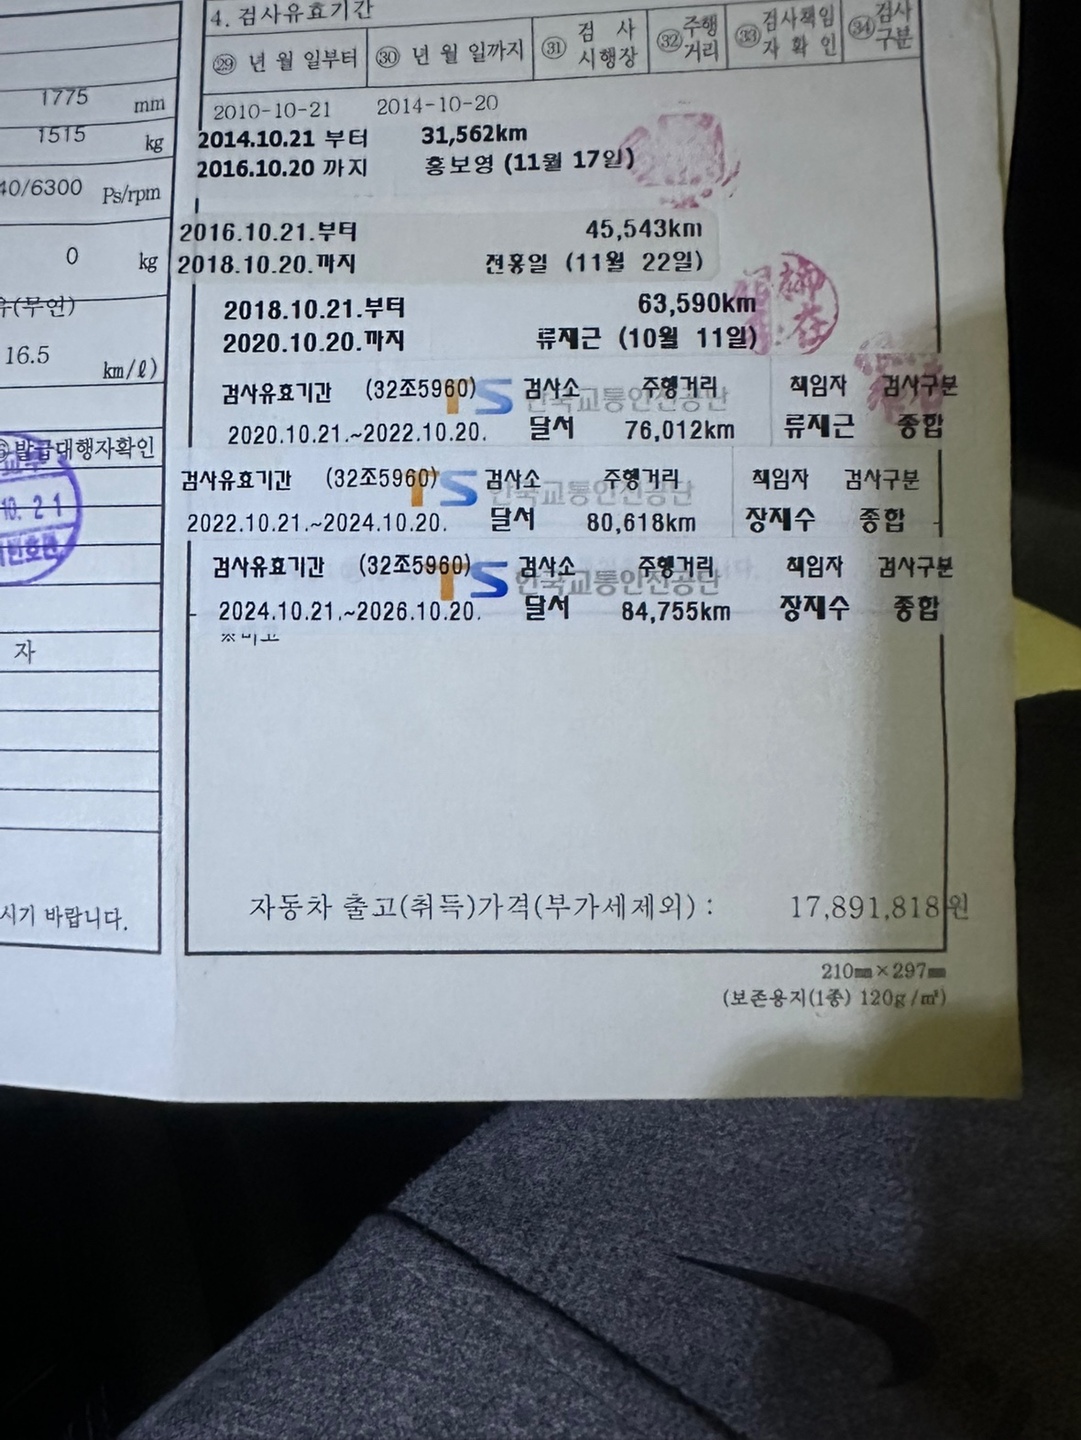 1775 mm
1515 kg
40/6300 Ps/rpm
0 kg
유(무연)
16.5 km/ℓ)
발급대행자확인
10. 2 1
자
시기 바랍니다.
4. 검사유효기간
㉙ 년 월 일부터
㉚ 년 월 일까지
㉛ 검 사 시행장
㉜ 주행 거리
㉝ 검사책임 자 확 인
㉞ 검사 구분
2010-10-21 2014-10-20
2014.10.21 부터 31,562km
2016.10.20 까지 홍보영 (11월 17일)
2016.10.21.부터 45,543km
2018.10.20.까지 전홍일 (11월 22일)
2018.10.21.부터 63,590km
2020.10.20.까지 류재근 (10월 11일)
TS 한국교통안전공단
검사유효기간 (32조5960) 검사소 주행거리 책임자 검사구분
2020.10.21.~2022.10.20. 달서 76,012km 류재근 종합
TS 한국교통안전공단
검사유효기간 (32조5960) 검사소 주행거리 책임자 검사구분
2022.10.21.~2024.10.20. 달서 80,618km 장재수 종합
TS 한국교통안전공단
검사유효기간 (32조5960) 검사소 주행거리 책임자 검사구분
2024.10.21.~2026.10.20. 달서 84,755km 장재수 종합
※비고
자동차 출고(취득)가격(부가세제외) : 17,891,818원
210㎜×297㎜
(보존용지(1종) 120g/㎡)